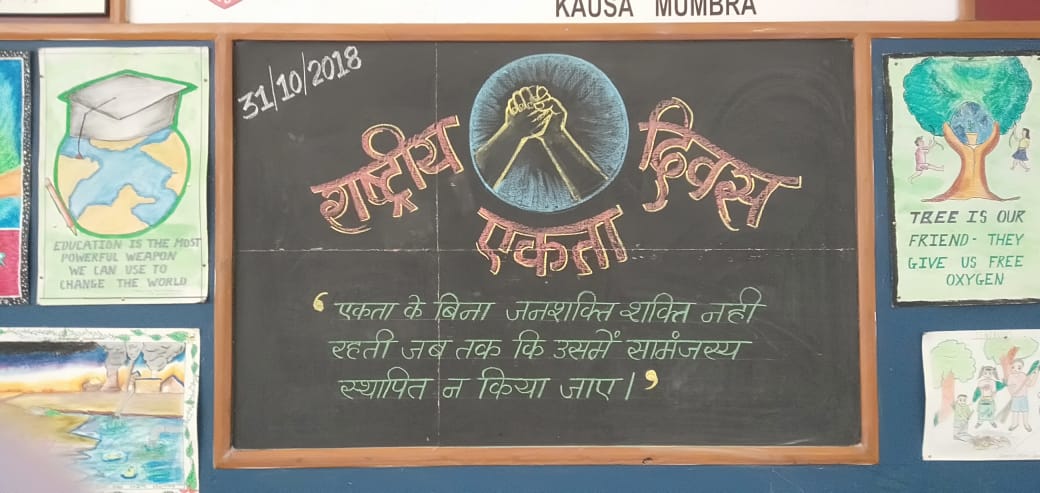 KAUSA MUMBRA
31/10/2018
राष्ट्रीय एकता दिवस
‘ एकता के बिना जनशक्ति शक्ति नही
रहती जब तक कि उसमें सामंजस्य
स्थापित न किया जाए। ’
EDUCATION IS THE MOST
POWERFUL WEAPON
WE CAN USE TO
CHANGE THE WORLD
TREE IS OUR
FRIEND - THEY
GIVE US FREE
OXYGEN